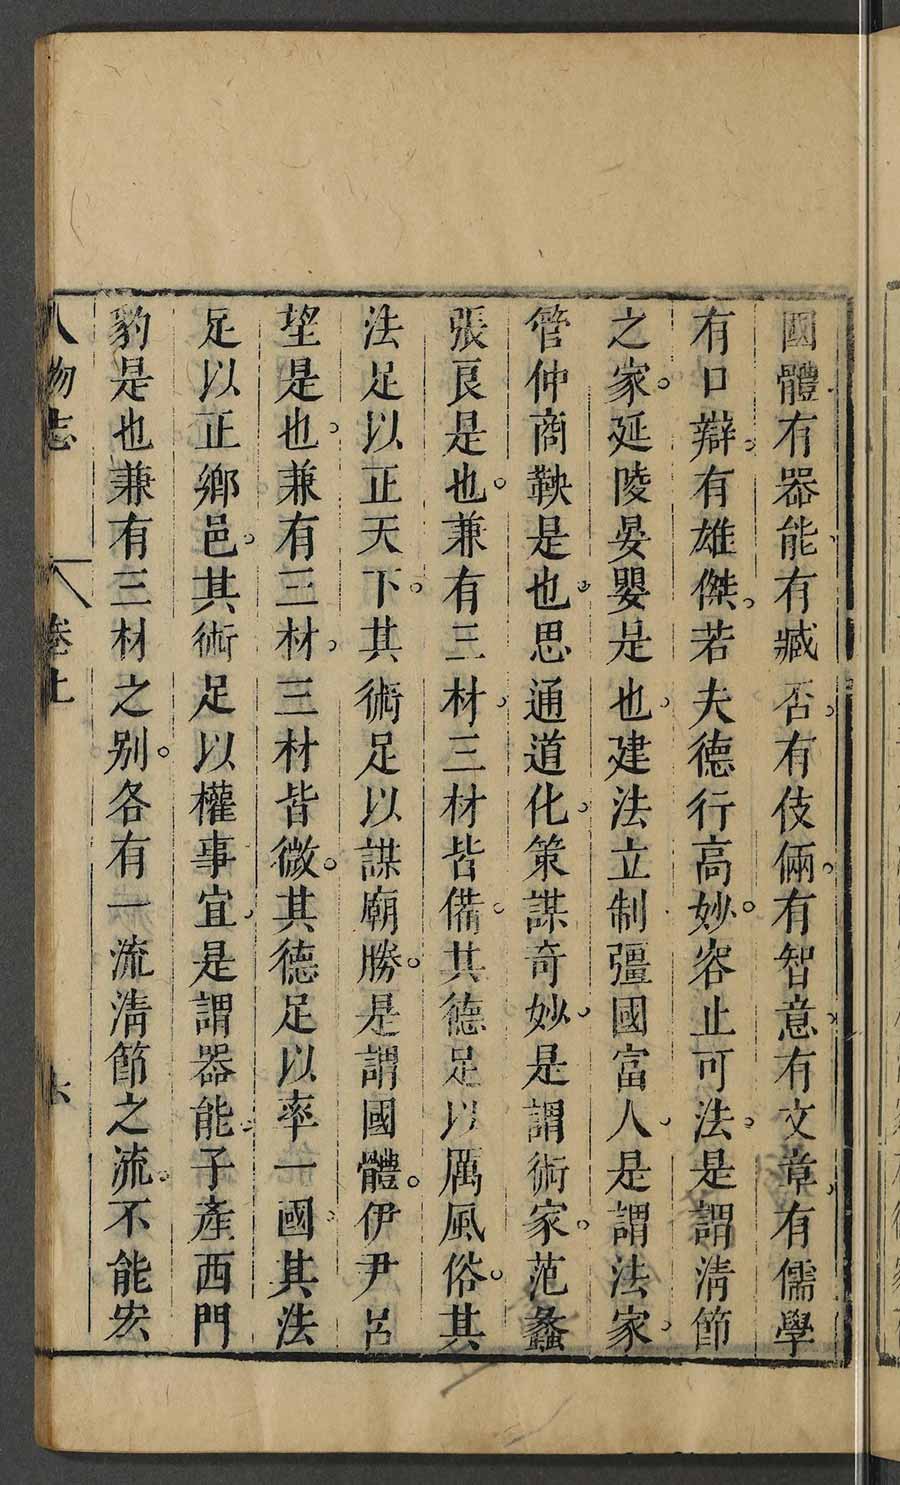 國體有器能有臧否有伎倆有智意有文章有儒學
有口辯有雄傑若夫德行高妙容止可法是謂清節
之家延陵晏嬰是也建法立制彊國富人是謂法家
管仲商鞅是也思通道化策謀奇妙是謂術家范蠡
張良是也兼有三材三材皆備其德足以厲風俗其
法足以正天下其術足以謀廟勝是謂國體伊尹呂
望是也兼有三材三材皆微其德足以率一國其法
足以正鄉邑其術足以權事宜是謂器能子產西門
豹是也兼有三材之别各有一流清節之流不能宏
人物志 卷上 六